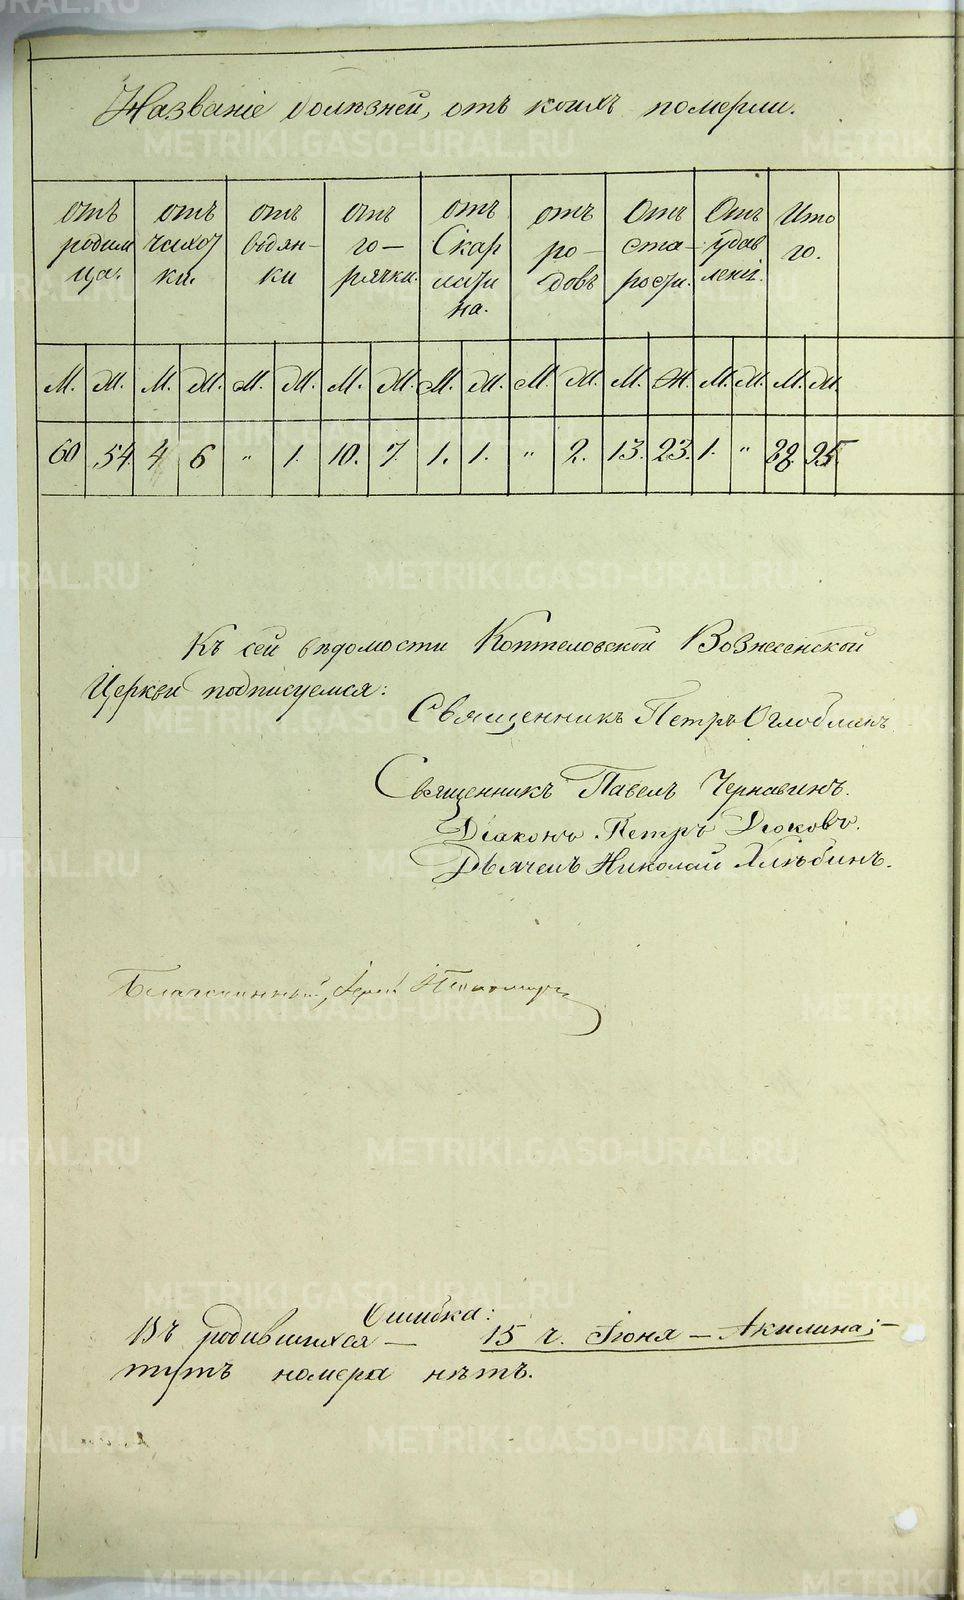 Названіе болѣзней, отъ коихъ померли.
отъ родим ца.
отъ чахот ки.
отъ водян- ки
отъ го- рячки.
отъ Скар лати на.
отъ ро- довъ
Отъ ста- рости.
Отъ удав ленія.
Ито го.
М. Ж. М. Ж. М. Ж. М. Ж. М. Ж. М. Ж. М. Ж. М. Ж. М. Ж.
60 54. 4 6 " 1. 10. 7. 1. 1. " 2. 13. 23. 1. " 95.
Къ сей вѣдомости Коптеловской Вознесенской
Церкви подписуемся:
Священникъ Петръ Оглоблинъ
Священникъ Павелъ Чернавинъ.
Діаконъ Петръ
Дьячекъ Николай Хлѣбинъ.
Благочинный, Іерей
Ошибка:
Въ родившихся — 15 ч. Іюня — Акилина; —
тутъ номера нѣтъ.
METRIKI.GASO-URAL.RU